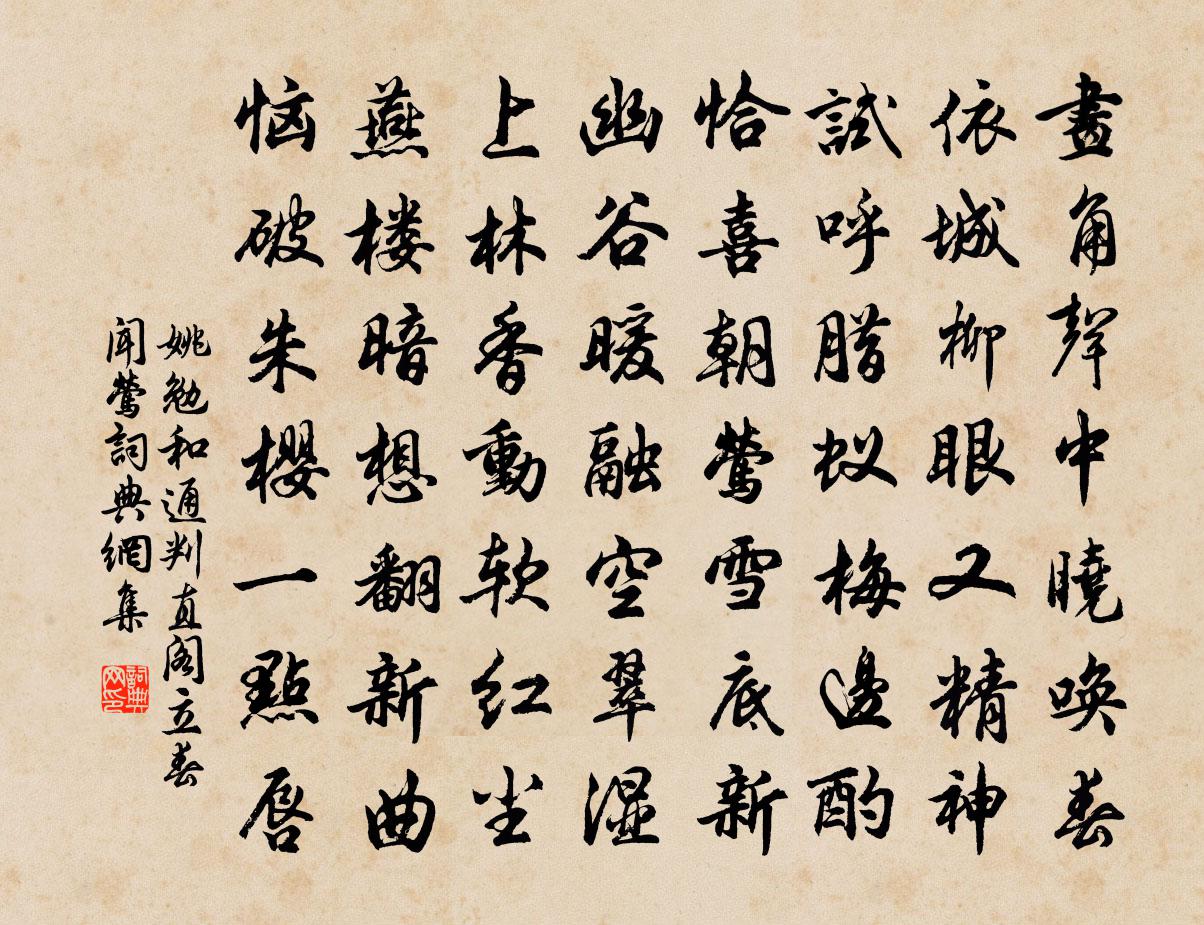 畫角聲中曉喚春
依城柳眼又精神
試呼腊蚁梅邊酌
恰喜朝鶯雪底新
幽谷暖融空翠湿
上林香動软红尘
燕楼暗想翻新曲
恼破朱櫻一點唇
姚勉和通判直阁立春
聞鶯詞典網集
詞典网印